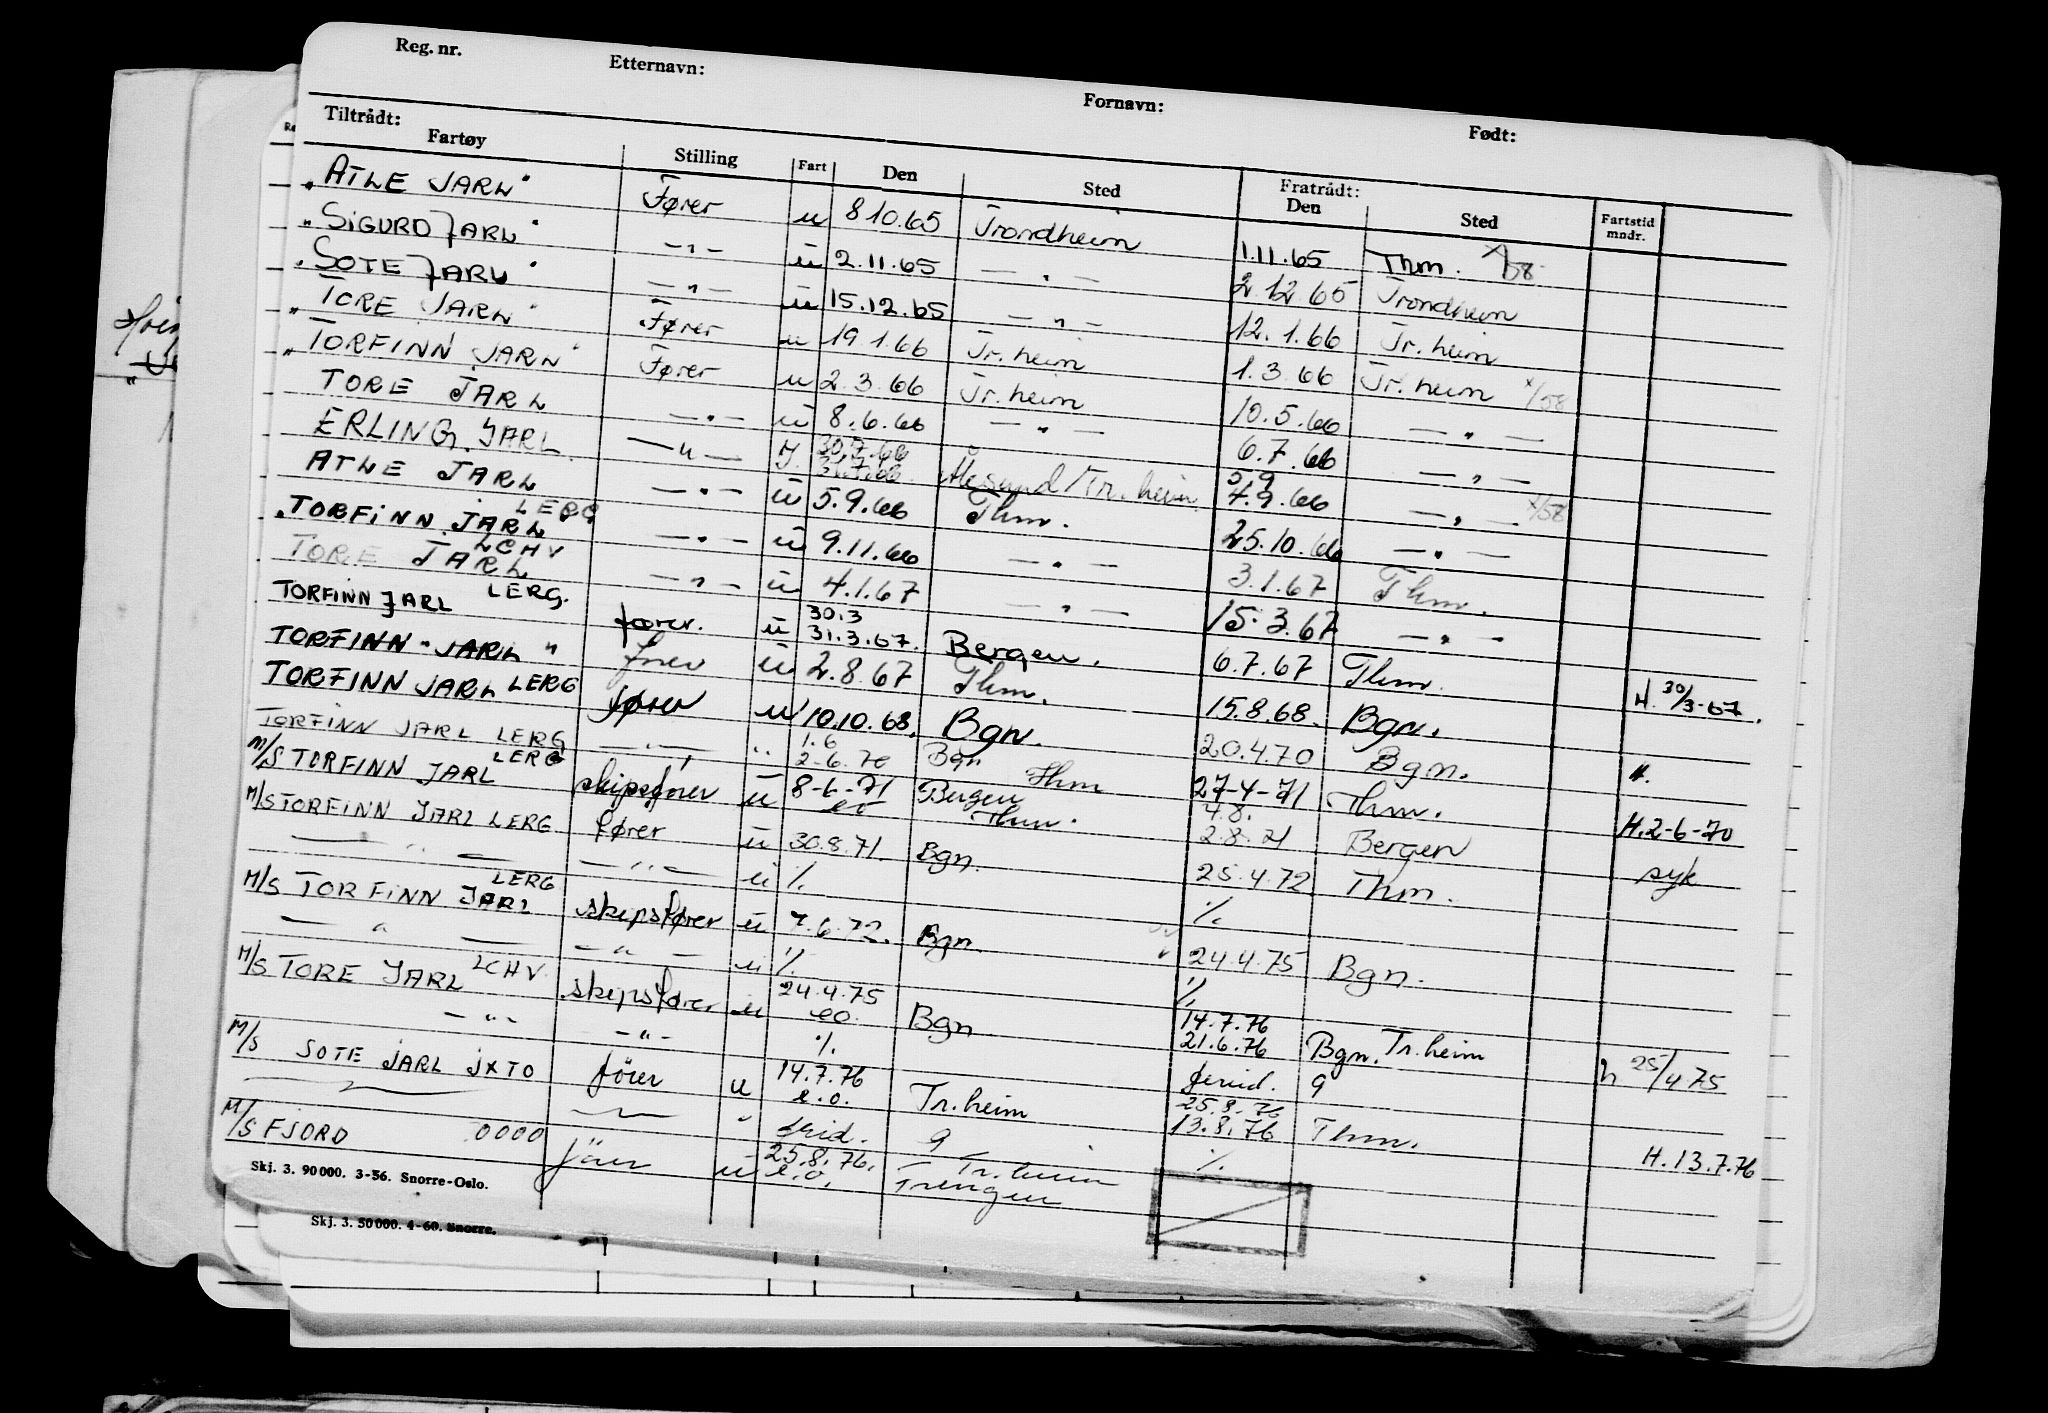 Reg. nr. Etternavn: Fornavn: Født:
Tiltrådt: Fratrådt:
Fartøy Stilling Fart Den Sted Den Sted Fartstid mndr.
"ATLE JARL" Fører u 8 10.65 Trondheim 1.11.65 Thm. x/58
"SIGURD JARL" —"— u 2.11.65 —"— 2.12.65 Trondheim
"SOTE JARL" —"— u 15.12.65 —"— 12.1.66 Tr.heim
"TORE JARL" Fører u 19 1.66 Tr.heim 1.3.66 Tr.heim x/58
"TORFINN JARL" Fører u 2.3.66 Tr.heim 10.5.66 —"—
TORE JARL —"— u 8.6.66 —"— 6.7.66 —"—
ERLING JARL —"— 30.7.66 31.7.66 Ålesund/Tr.heim 5/9 4.9.66 —"— x/58
ATLE JARL —"— u 5.9.66 Thm. 25.10.66 —"—
TORFINN JARL LERG —"— u 9.11.66 —"— 3.1.67 Thm.
TORE JARL LCHV —"— u 4.1.67 —"— 15.3.67 —"—
TORFINN JARL LERG. fører. u 30.3 31.3.67. Bergen. 6.7.67 Thm. H. 30/3-67.
TORFINN "JARL" fører u 2.8.67 Thm. 15.8.68. Bgn.
TORFINN JARL LERG fører u 10.10.68. Bgn. 20.4.70 Bgn.
TORFINN JARL LERG —"— " 1.6 2-6.70 Bgn Thm 27-4-71 Thm. H.2-6-70
M/S TORFINN JARL LERG skipsfører u 8-6-71 eo Bergen Thm. 4.8. 2.8.71 Bergen syk
M/S TORFINN JARL LERG fører u 30.8.71. Bgn. 25.4.72 Thm.
—"— —"— u %. %.
M/S TORFINN JARL LERG skipsfører u 7.6.72. Bgn. 24.4.75 Bgn.
—"— —"— u %. %.
M/S TORE JARL LCHV. skipsfører u 24.4.75 eo. Bgn 14.7.76 21.6.76 Bgn. Tr.heim h 25/4 75
—"— —"— %. 9
M/S SOTE JARL JXTO förer u 14.7.76 e.o. Tr.heim 25.8.76 13.8.76 Thm. H.13.7.76
" 9 %.
M/S FJORD 0000 förer u 25.8.76. e.o. Tr.heim
Skj. 3. 90 000. 3-56. Snorre-Oslo.
Skj. 3. 50 000. 4-60. Snorre.